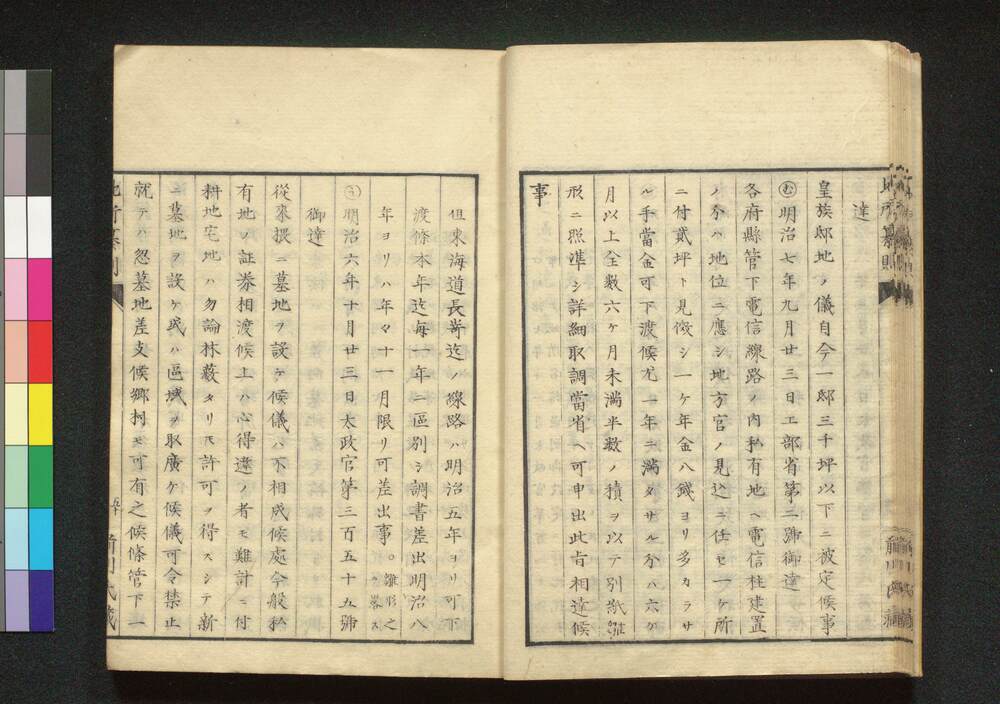 達
皇族邸地ノ儀自今一邸三千坪以下ニ被定候事
㋰明治七年九月廿三日工部省第二號御達
各府縣管下電信線路ノ内私有地ヘ電信柱建置
ノ分ハ地位ニ應シ地方官ノ見込ニ任セ一ケ所
ニ付貳坪ト見傚シ一ケ年金八錢ヨリ多カラサ
ル手當金可下渡候尤一年ニ滿タサル分ハ六ケ
月以上全數六ケ月未滿半數ノ積ヲ以テ別紙雛
形ニ照準シ詳細取調當省ヘ可申出此旨相達候
事
但東海道長嵜迄ノ線路ハ明治五年ヨリ可下
渡條本年迄毎一年ニ區別シ調書差出明治八
年ヨリハ年々十一月限リ可差出事。雛形之ヲ畧ス
㋒明治六年十月廿三日太政官第三百五十五號
御達
從來猥ニ墓地ヲ設ケ候儀ハ不相成候處今般私
有地ノ証券相渡候上ハ心得違ノ者モ難計ニ付
耕地宅地ハ勿論林藪タリ𪜈許可ヲ得スシテ新
ニ墓地ヲ設ケ或ハ區域ヲ取廣ケ候儀可令禁止
就テハ忽墓地差支候郷村モ可有之候條管下一